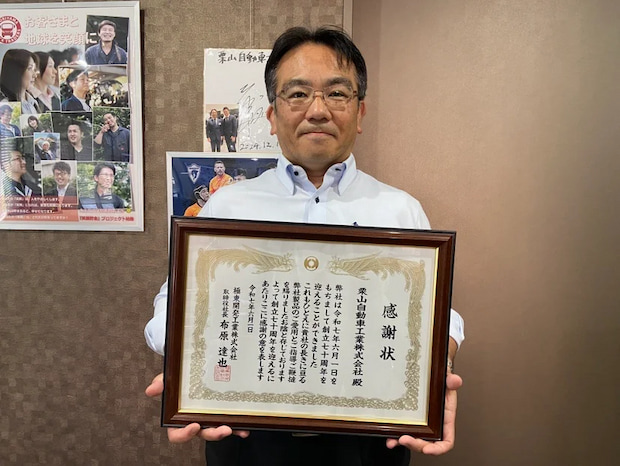 お客さまと
地域を笑顔に
栗山自動車工業
2024.12.
感謝状
栗山自動車工業株式会社 殿
弊社は令和七年六月一日を
もちまして創立七十周年を
迎えることができました
これもひとえに貴社の長きに亘る
弊社製品のご愛用とご指導ご鞭撻
を賜りましたお陰と存じております
よって創立七十周年を迎えるに
あたりここに感謝の意を表します
令和七年六月一日
極東開発工業株式会社
取締役社長 布原達也